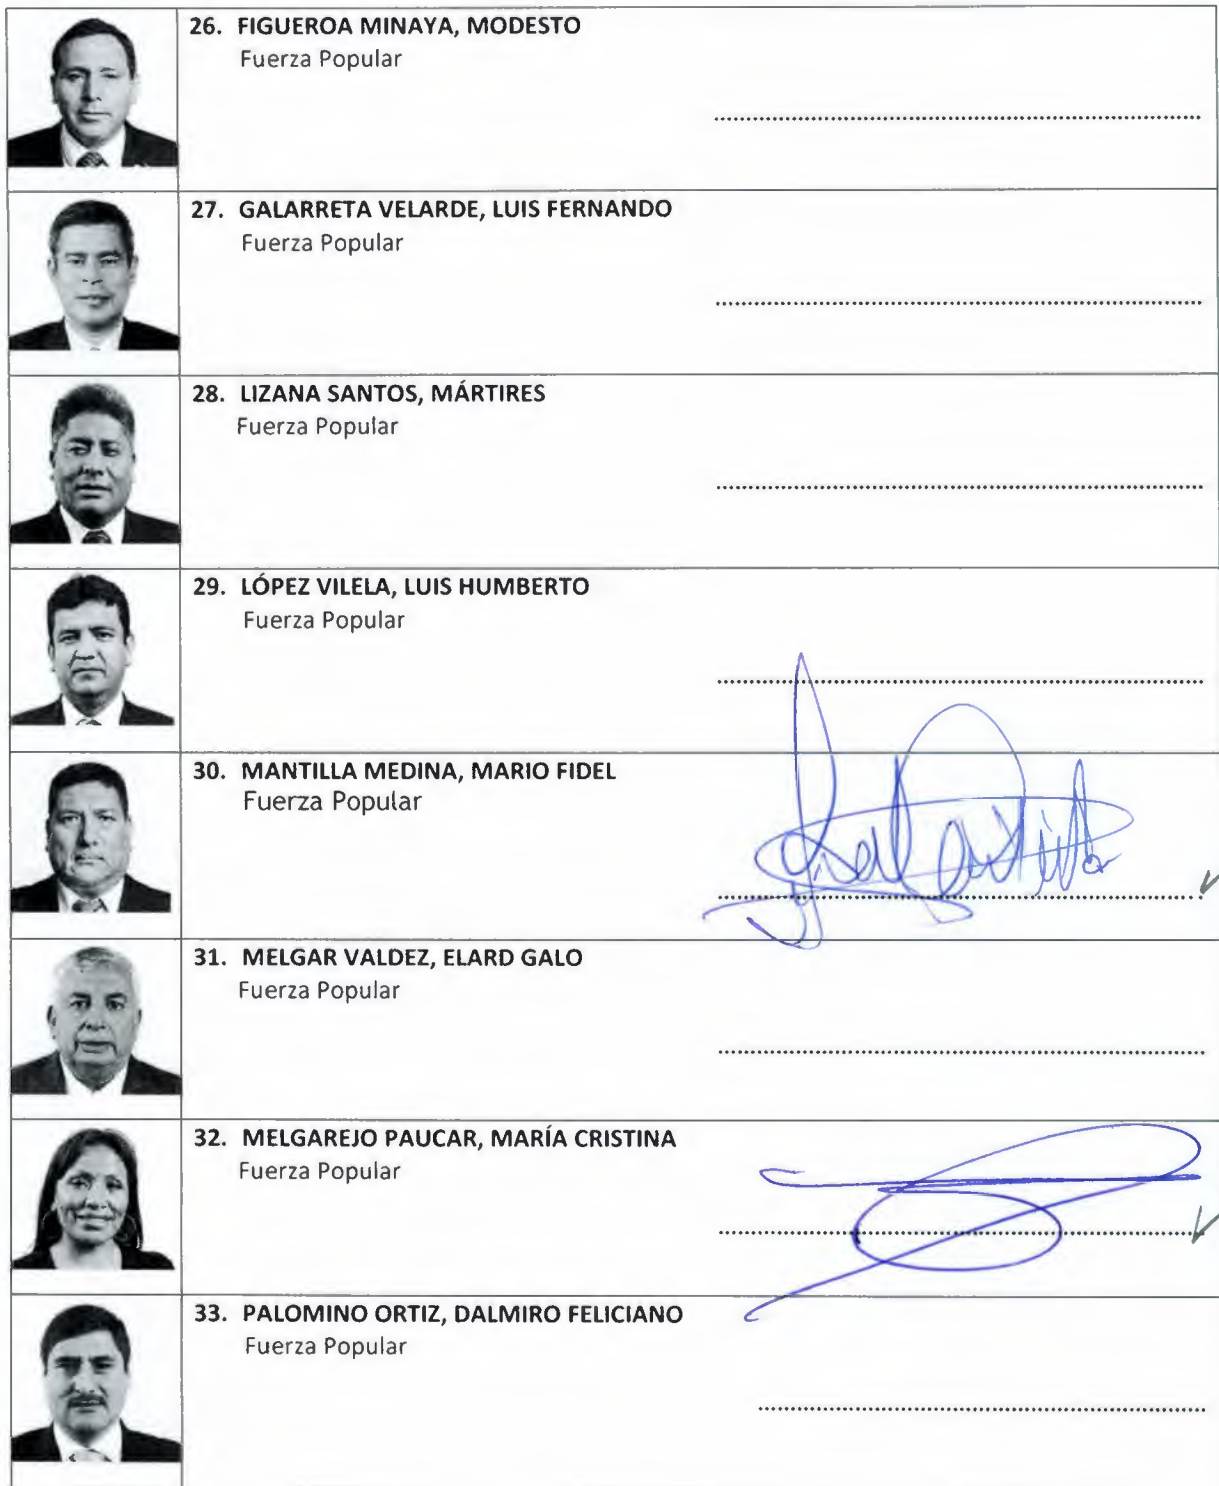 26. FIGUEROA MINAYA, MODESTO
Fuerza Popular
27. GALARRETA VELARDE, LUIS FERNANDO
Fuerza Popular
28. LIZANA SANTOS, MÁRTIRES
Fuerza Popular
29. LÓPEZ VILELA, LUIS HUMBERTO
Fuerza Popular
30. MANTILLA MEDINA, MARIO FIDEL
Fuerza Popular
31. MELGAR VALDEZ, ELARD GALO
Fuerza Popular
32. MELGAREJO PAUCAR, MARÍA CRISTINA
Fuerza Popular
33. PALOMINO ORTIZ, DALMIRO FELICIANO
Fuerza Popular